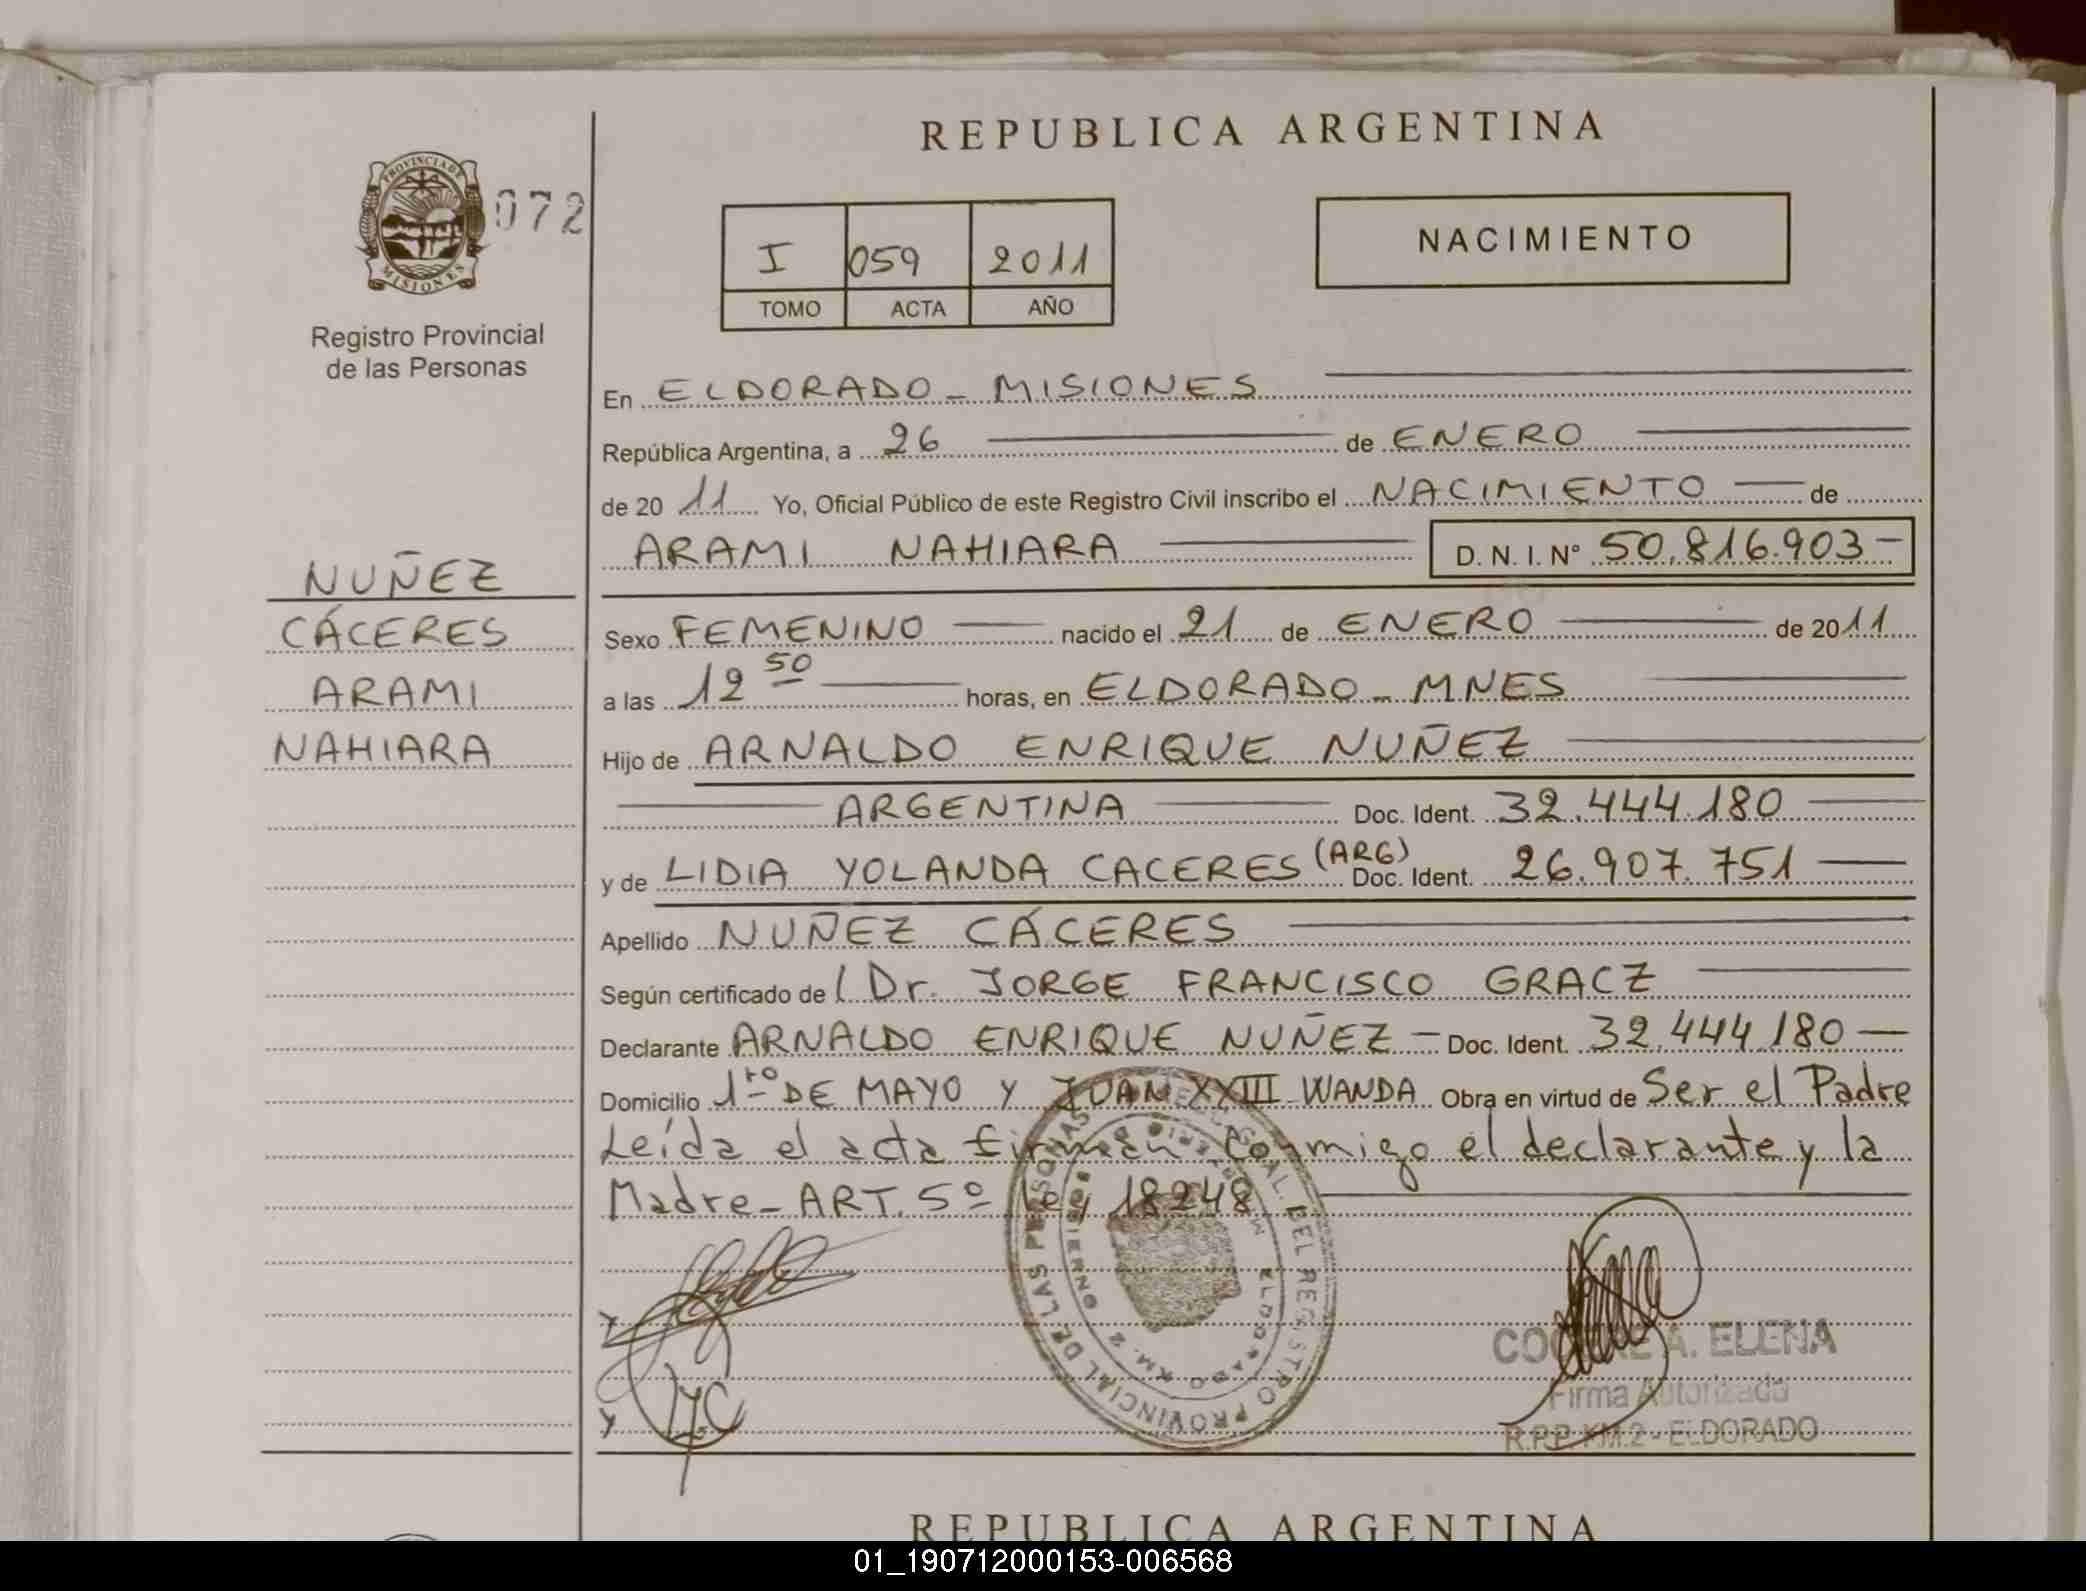 REPUBLICA ARGENTINA
PROVINCIA DE
MISIONES
072
Registro Provincial
de las Personas
I 059 2011
TOMO ACTA AÑO
NACIMIENTO
En ELDORADO - MISIONES
República Argentina, a 26 de ENERO
de 20 11 Yo, Oficial Público de este Registro Civil inscribo el NACIMIENTO de
ARAMI NAHIARA D. N. I. Nº 50.816.903-
NUÑEZ
CÁCERES
ARAMI
NAHIARA
Sexo FEMENINO nacido el 21 de ENERO de 2011
a las 12 50 horas, en ELDORADO - MNES
Hijo de ARNALDO ENRIQUE NUÑEZ
ARGENTINA Doc. Ident. 32.444.180
y de LIDIA YOLANDA CACERES (ARG) Doc. Ident. 26.907.751
Apellido NUÑEZ CÁCERES
Según certificado de l Dr. JORGE FRANCISCO GRACZ
Declarante ARNALDO ENRIQUE NUÑEZ - Doc. Ident. 32.444.180
Domicilio 1ro DE MAYO Y JUAN XXIII - WANDA Obra en virtud de Ser el Padre
Leída el acta firman conmigo el declarante y la
Madre - ART. 5º ley 18248
PROVINCIAL DE LAS PERSONAS
DEL REGISTRO
GOBIERNO
ELDORADO KM. 2
A. ELENA
Firma Autorizada
R.P.P. KM.2 - ELDORADO
REPUBLICA ARGENTINA
01_190712000153-006568